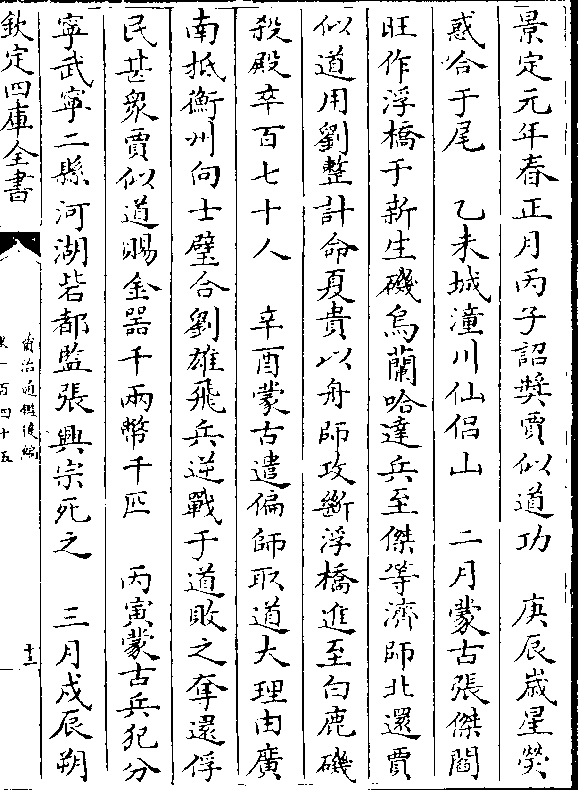 景定元年春正月丙子詔奬賈似道功　庚辰嵗星熒
惑合于尾　乙未城潼川仙侣山　二月蒙古張傑閻
旺作浮橋于新生磯烏蘭哈達兵至傑等濟師北還賈
似道用劉整計命夏貴以舟師攻斷浮橋進至白鹿磯
殺殿卒百七十人　辛酉蒙古遣偏師取道大理由廣
南抵衡州向士璧合劉雄飛兵逆戰于道敗之奪還俘
民甚衆賈似道賜金器千兩幣千匹　丙寅蒙古兵犯分
寧武寧二縣河湖砦都監張興宗死之　三月戊辰朔
欽定四庫全書
資治通鑑後編
卷一百四十五
十三